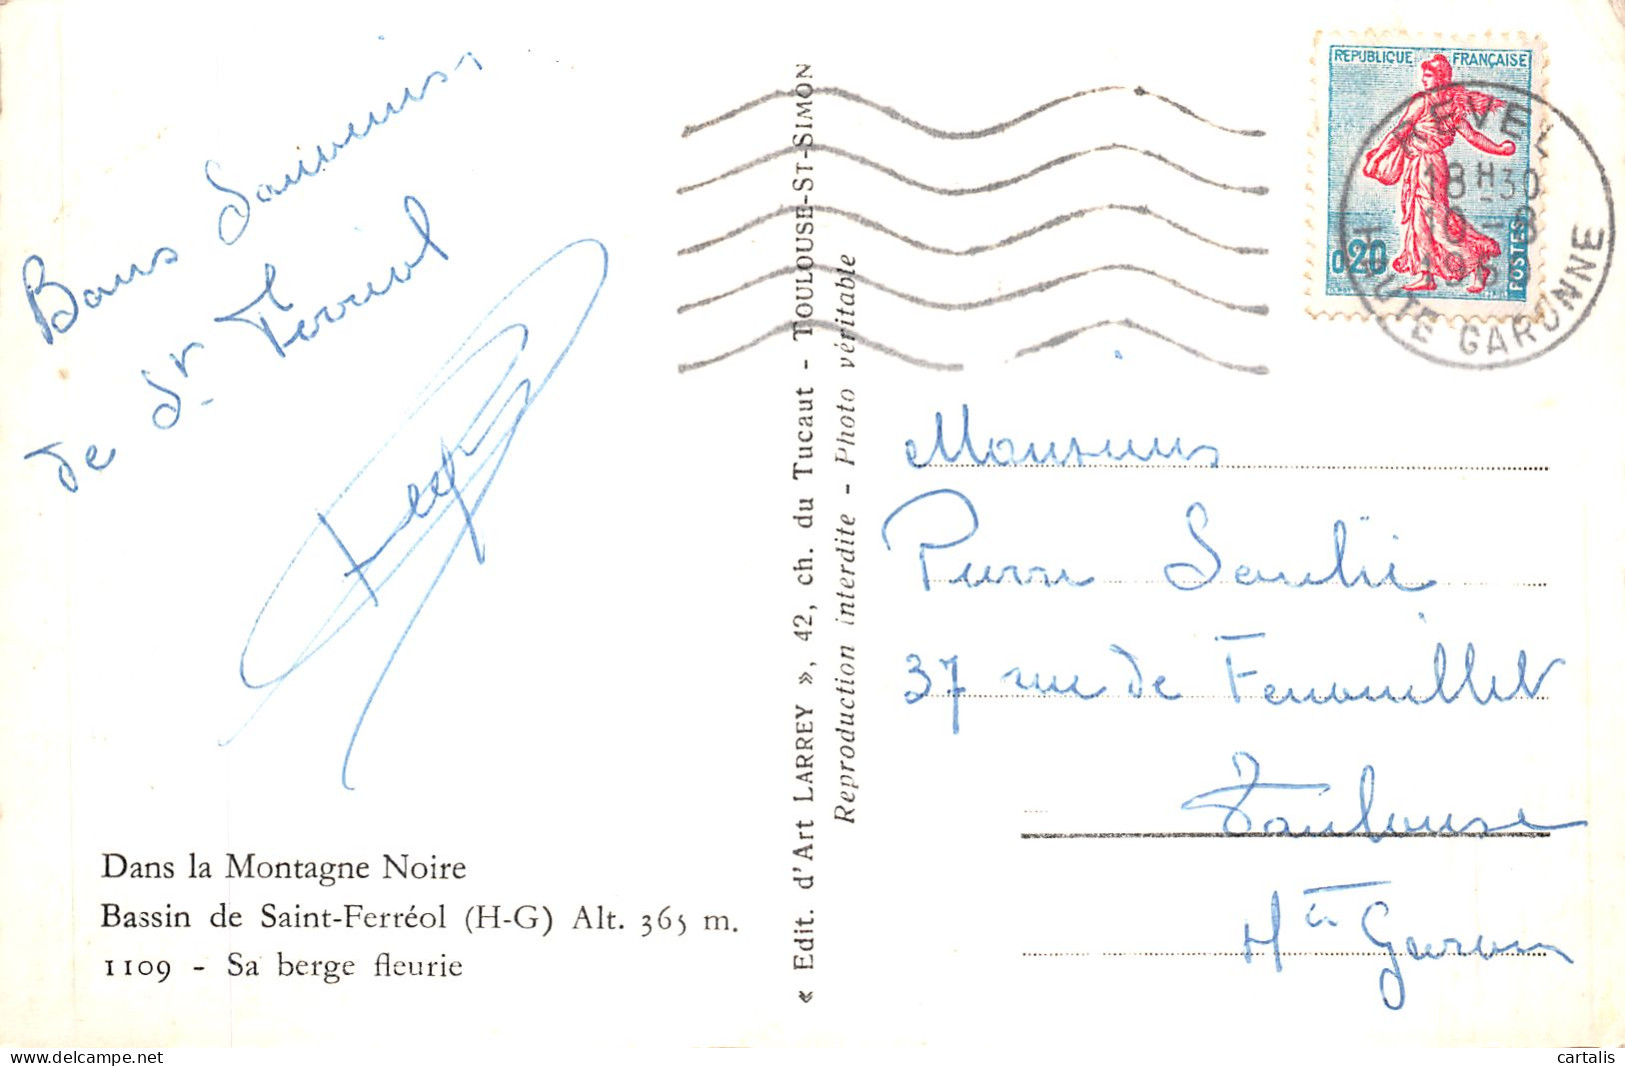 Bons Souvenirs
de St Ferréol
Dans la Montagne Noire
Bassin de Saint-Ferréol (H-G) Alt. 365 m.
1109 - Sa berge fleurie
« Edit. d'Art LARREY », 42, ch. du Tucaut - TOULOUSE-ST-SIMON
Reproduction interdite - Photo véritable
REPUBLIQUE FRANÇAISE
0,20
POSTES
REVEL
18H30
HAUTE GARONNE
Monsieur
Pierre
37 rue de Fenouillet
Toulouse
Hte Garonne
cartalis